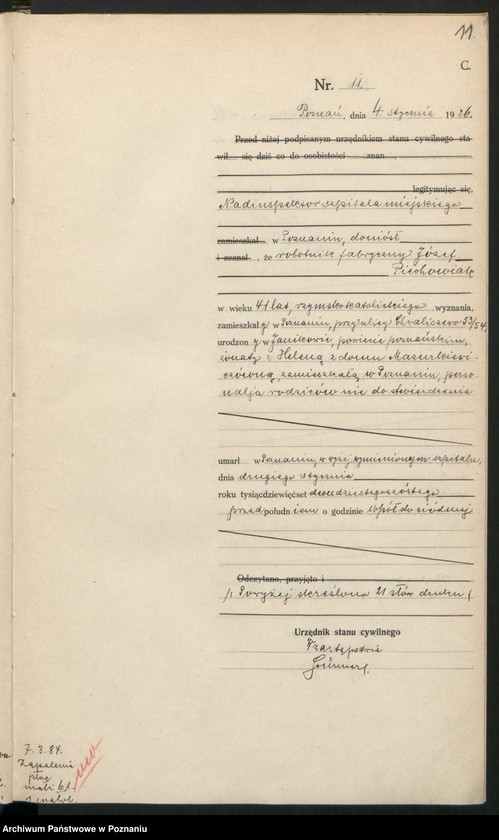 11
C.
Nr. 11.
Poznań, dnia 4 stycznia 1926.
Przed niżej podpisanym urzędnikiem stanu cywilnego sta-
wił się dziś co do osobistości znan ,
legitymując się.
Nadinspektor szpitala miejskiego
zamieszkał w Poznaniu, doniósł
i zeznał , że robotnik fabryczny Józef
Piechowiak
w wieku 41 lat, rzymskokatolickiego wyznania,
zamieszkały w Poznaniu, przy ulicy Chwaliszewo 53/54,
urodzony w Janikowie, powiecie poznańskim,
żonaty z Heleną z domu Mazurkiewi-
czówną, zamieszkałą w Poznaniu, perso-
nalja rodziców nie do stwierdzenia
umarł w Poznaniu, w wyżej wymienionym szpitalu,
dnia drugiego stycznia
roku tysiącdziewięćset dwudziestegoszóstego
przedpołudniem o godzinie wpół do siódmej
Odczytano, przyjęto i
Powyżej skreślono 21 słów druku
Urzędnik stanu cywilnego
W zastępstwie
7. 3. 84.
Zapalenie
płuc
Archiwum Państwowe w Poznaniu